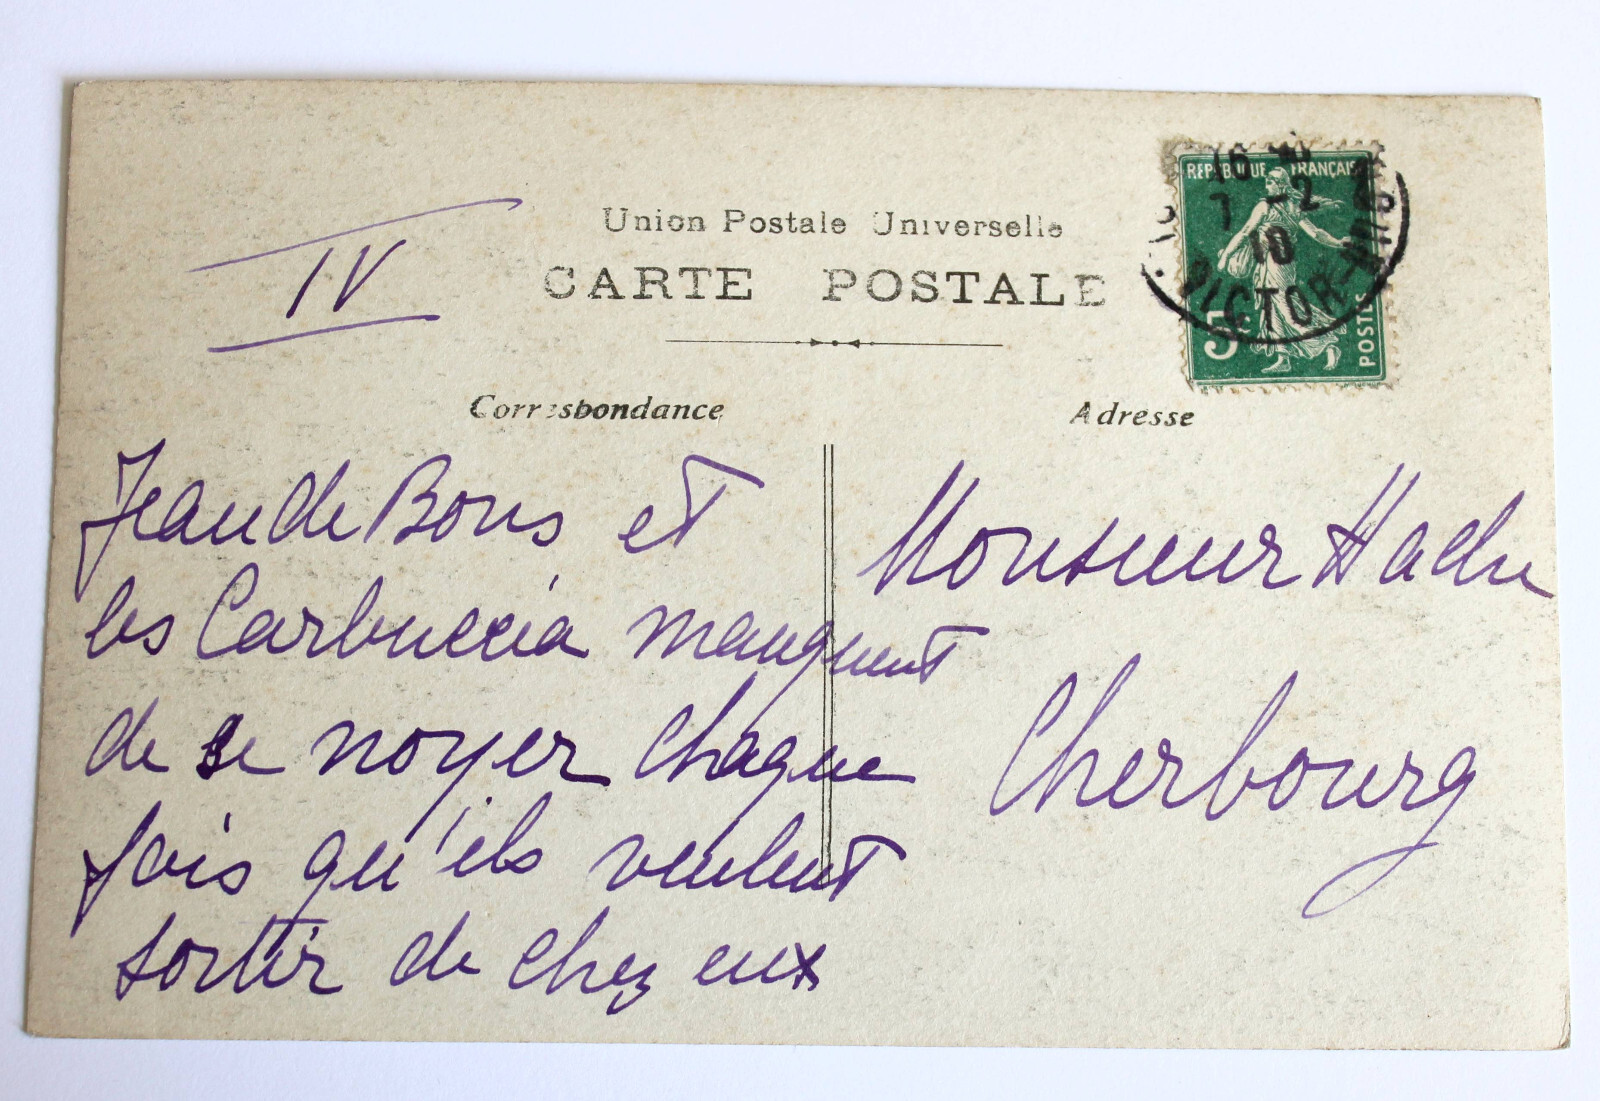 IV
Union Postale Universelle
CARTE POSTALE
REPUBLIQUE FRANÇAISE
16
7 -2
10
VICTOR-
5c
POSTES
Correspondance
Adresse
Jean de Bons et
les Carbuccia manquent
de se noyer chaque
fois qu'ils veulent
sortir de chez eux
Monsieur
Cherbourg